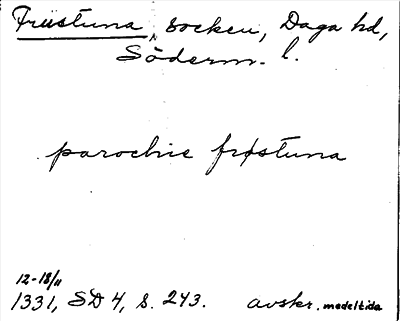 Frustuna, socken, Daga hd,
Söderm. l.
parochie frøstuna
12-18/11
1331, SD 4, s. 243. avskr. medeltida